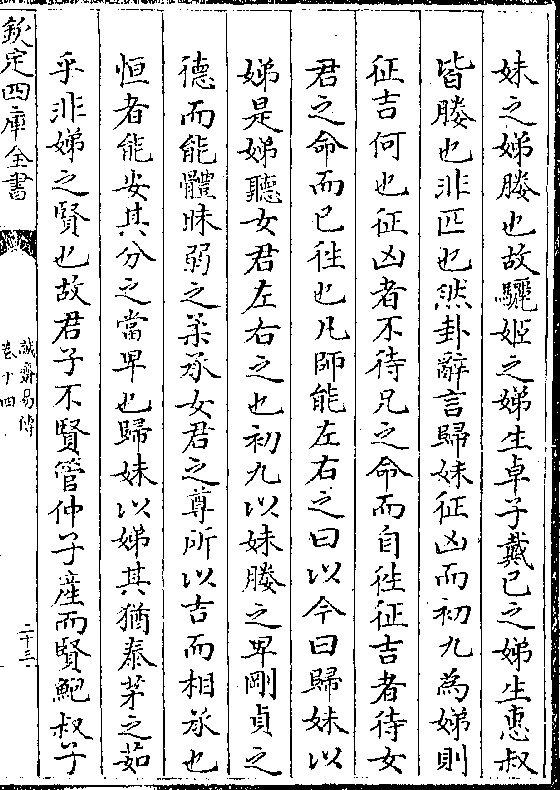 妹之娣媵也故驪姬之娣生卓子戴已之娣生恵叔
皆媵也非匹也然卦辭言歸妹征凶而初九為娣則
征吉何也征凶者不待兄之命而自徃征吉者待女
君之命而已徃也凡師能左右之曰以今曰歸妹以
娣是娣聽女君左右之也初九以妹媵之卑剛貞之
德而能體昧弱之柔承女君之尊所以吉而相承也
恒者能安其分之當卑也歸妹以娣其猶泰茅之茹
乎非娣之賢也故君子不賢管仲子産而賢鮑叔子
欽定四庫全書
誠齋易傳
卷十四
二十三